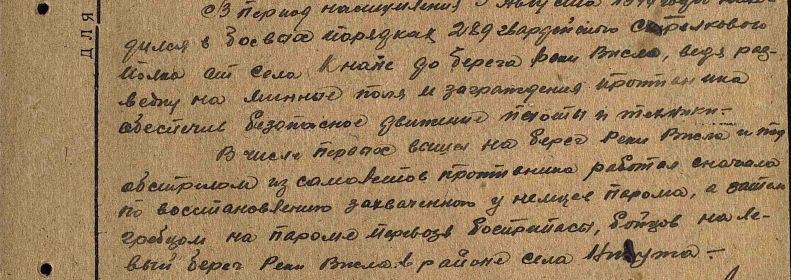 ДЛЯ
В период наступления Августа 1944 года нахо-
дился в боевых порядках 289 гвардейского стрелкового
полка от села Кнапе до берега реки Висла, ведя раз-
ведку на минные поля и заграждения противника
обеспечив безопасное движение пехоты и техники.-
В числе первых вышел на берег реки Висла и под
обстрелом из самолетов противника работал сначала
по восстановлению захваченного у немцев парома, а затем
гребцом на пароме перевозя боеприпасы, бойцов на ле-
вый берег реки Висла в районе села